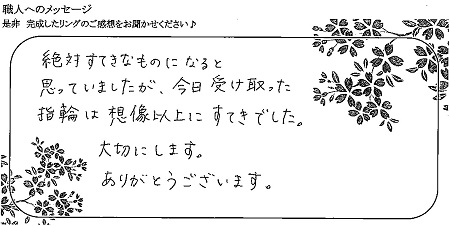 職人へのメッセージ
是非 完成したリングのご感想をお聞かせください♪
絶対すてきなものになると
思っていましたが、今日受け取った
指輪は想像以上にすてきでした。
大切にします。
ありがとうございます。